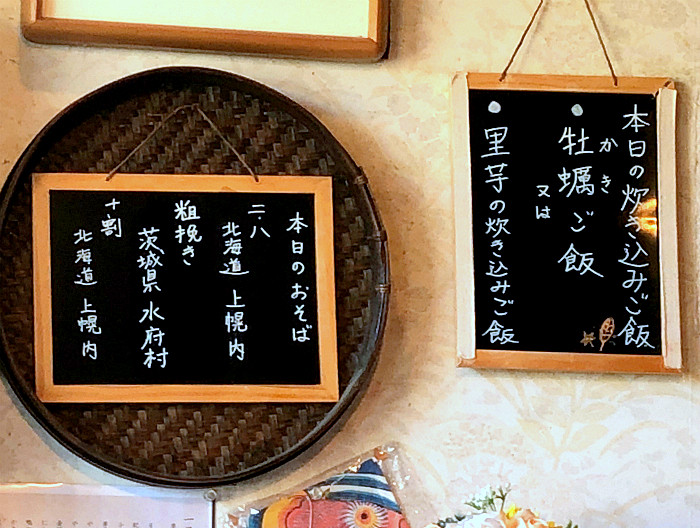 本日のおそば
二・八
北海道 上幌内
粗挽き
茨城県 水府村
十割
北海道 上幌内
本日の炊き込みご飯
かき
牡蠣ご飯
又は
里芋の炊き込みご飯